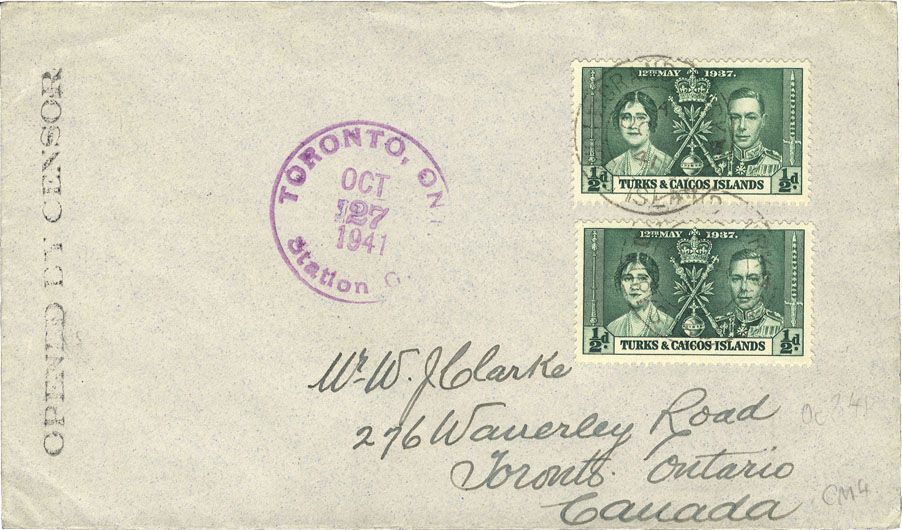 OPENED BY CENSOR
TORONTO, ONT
OCT
27
1941
Station G
12TH MAY 1937.
½d.
TURKS & CAICOS ISLANDS
½d.
12TH MAY 1937.
½d.
TURKS & CAICOS ISLANDS
½d.
GRAND
41
ISLANDS
Mr W. J Clarke
276 Waverley Road
Toronto. Ontario
Canada
CM4